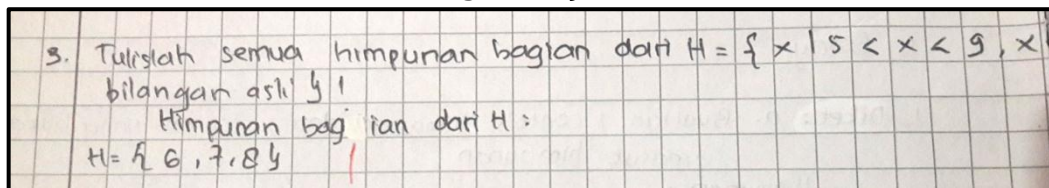 3. Tulislah semua himpunan bagian dari H = { x | 5 < x < 9, x
bilangan asli } !
Himpunan bagian dari H :
H = { 6, 7, 8 }